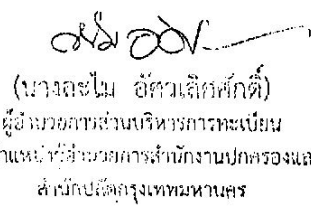 (นางละไม อัศวเลิศศักดิ์)
ผู้อำนวยการส่วนบริหารการทะเบียน
สำนักงานปกครองและ
สำนักปลัดกรุงเทพมหานคร